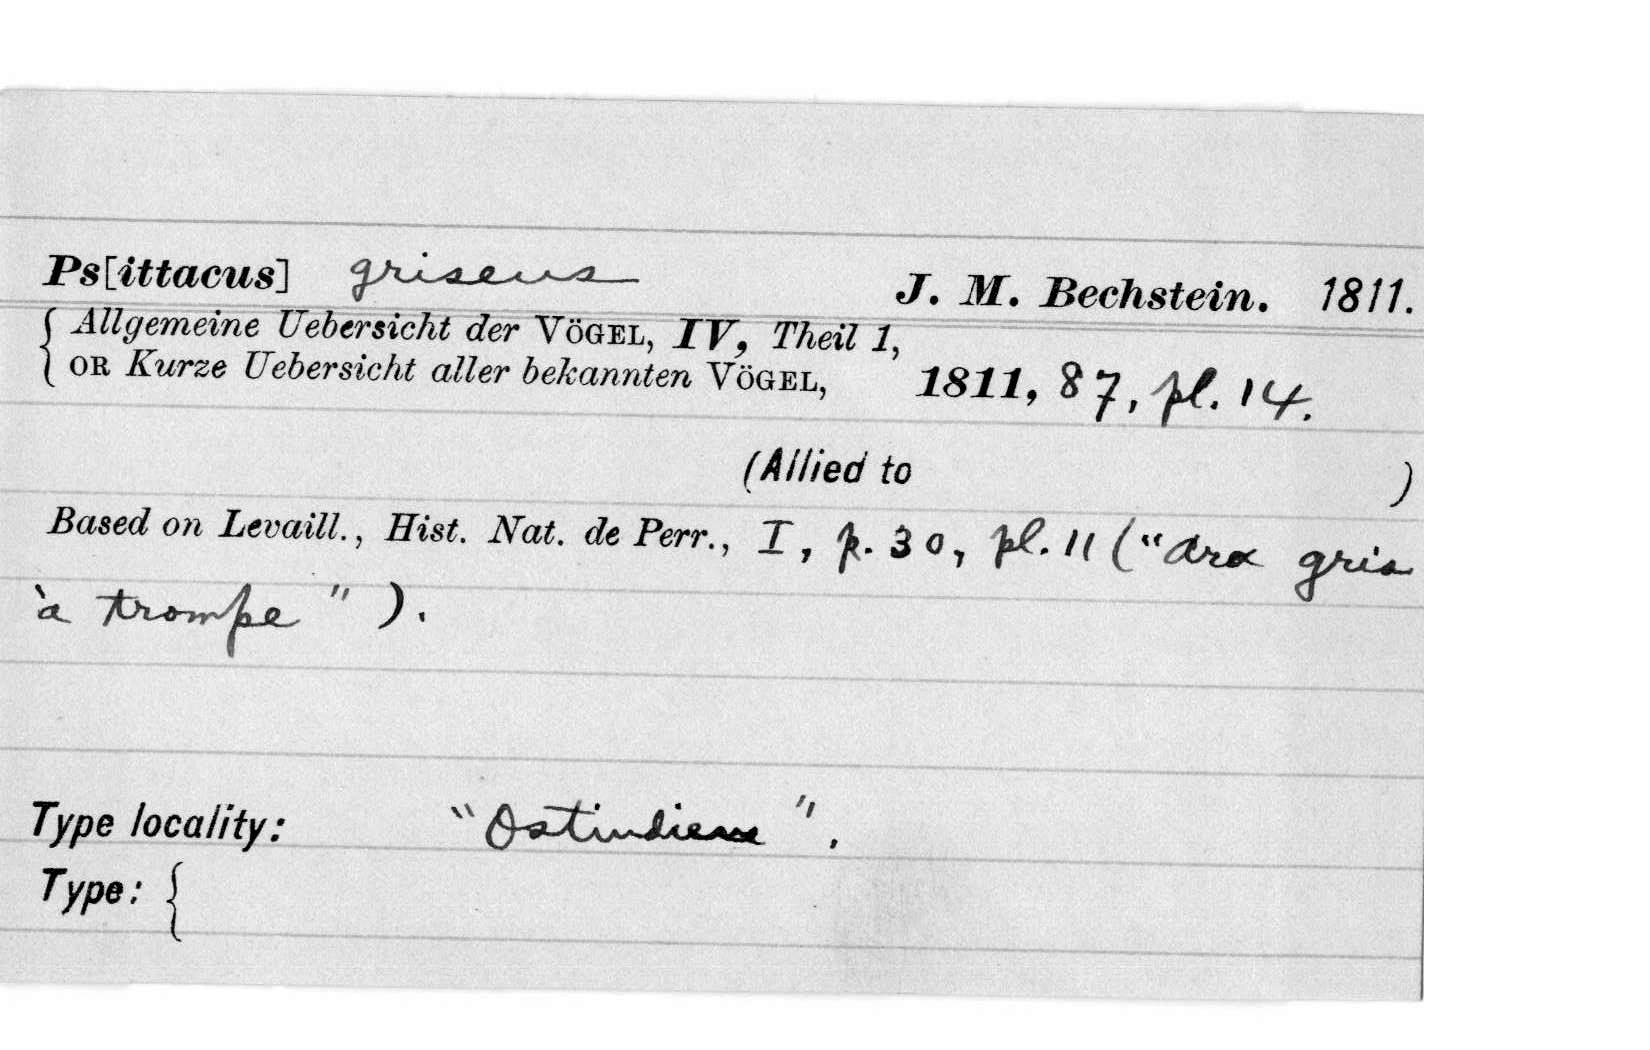 Ps[ittacus] griseus J. M. Bechstein. 1811.
{ Allgemeine Uebersicht der VÖGEL, IV, Theil 1,
OR Kurze Uebersicht aller bekannten VÖGEL, 1811, 87, pl. 14.
(Allied to )
Based on Levaill., Hist. Nat. de Perr., I, p. 30, pl. 11 ("Ara gris
à trompe").
Type locality: "Ostindien".
Type: {